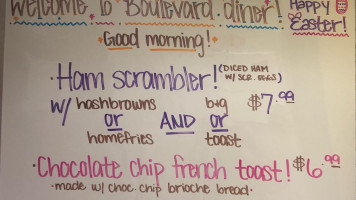 Welcome To Boulevard diner!
Happy Easter!
Good morning!
·Ham scrambler! (DICED HAM W/ SCR. EGGS)
w/ hashbrowns or homefries AND b+g or toast $7.99
·Chocolate chip french toast! $6.99
·made w/ choc. chip brioche bread·